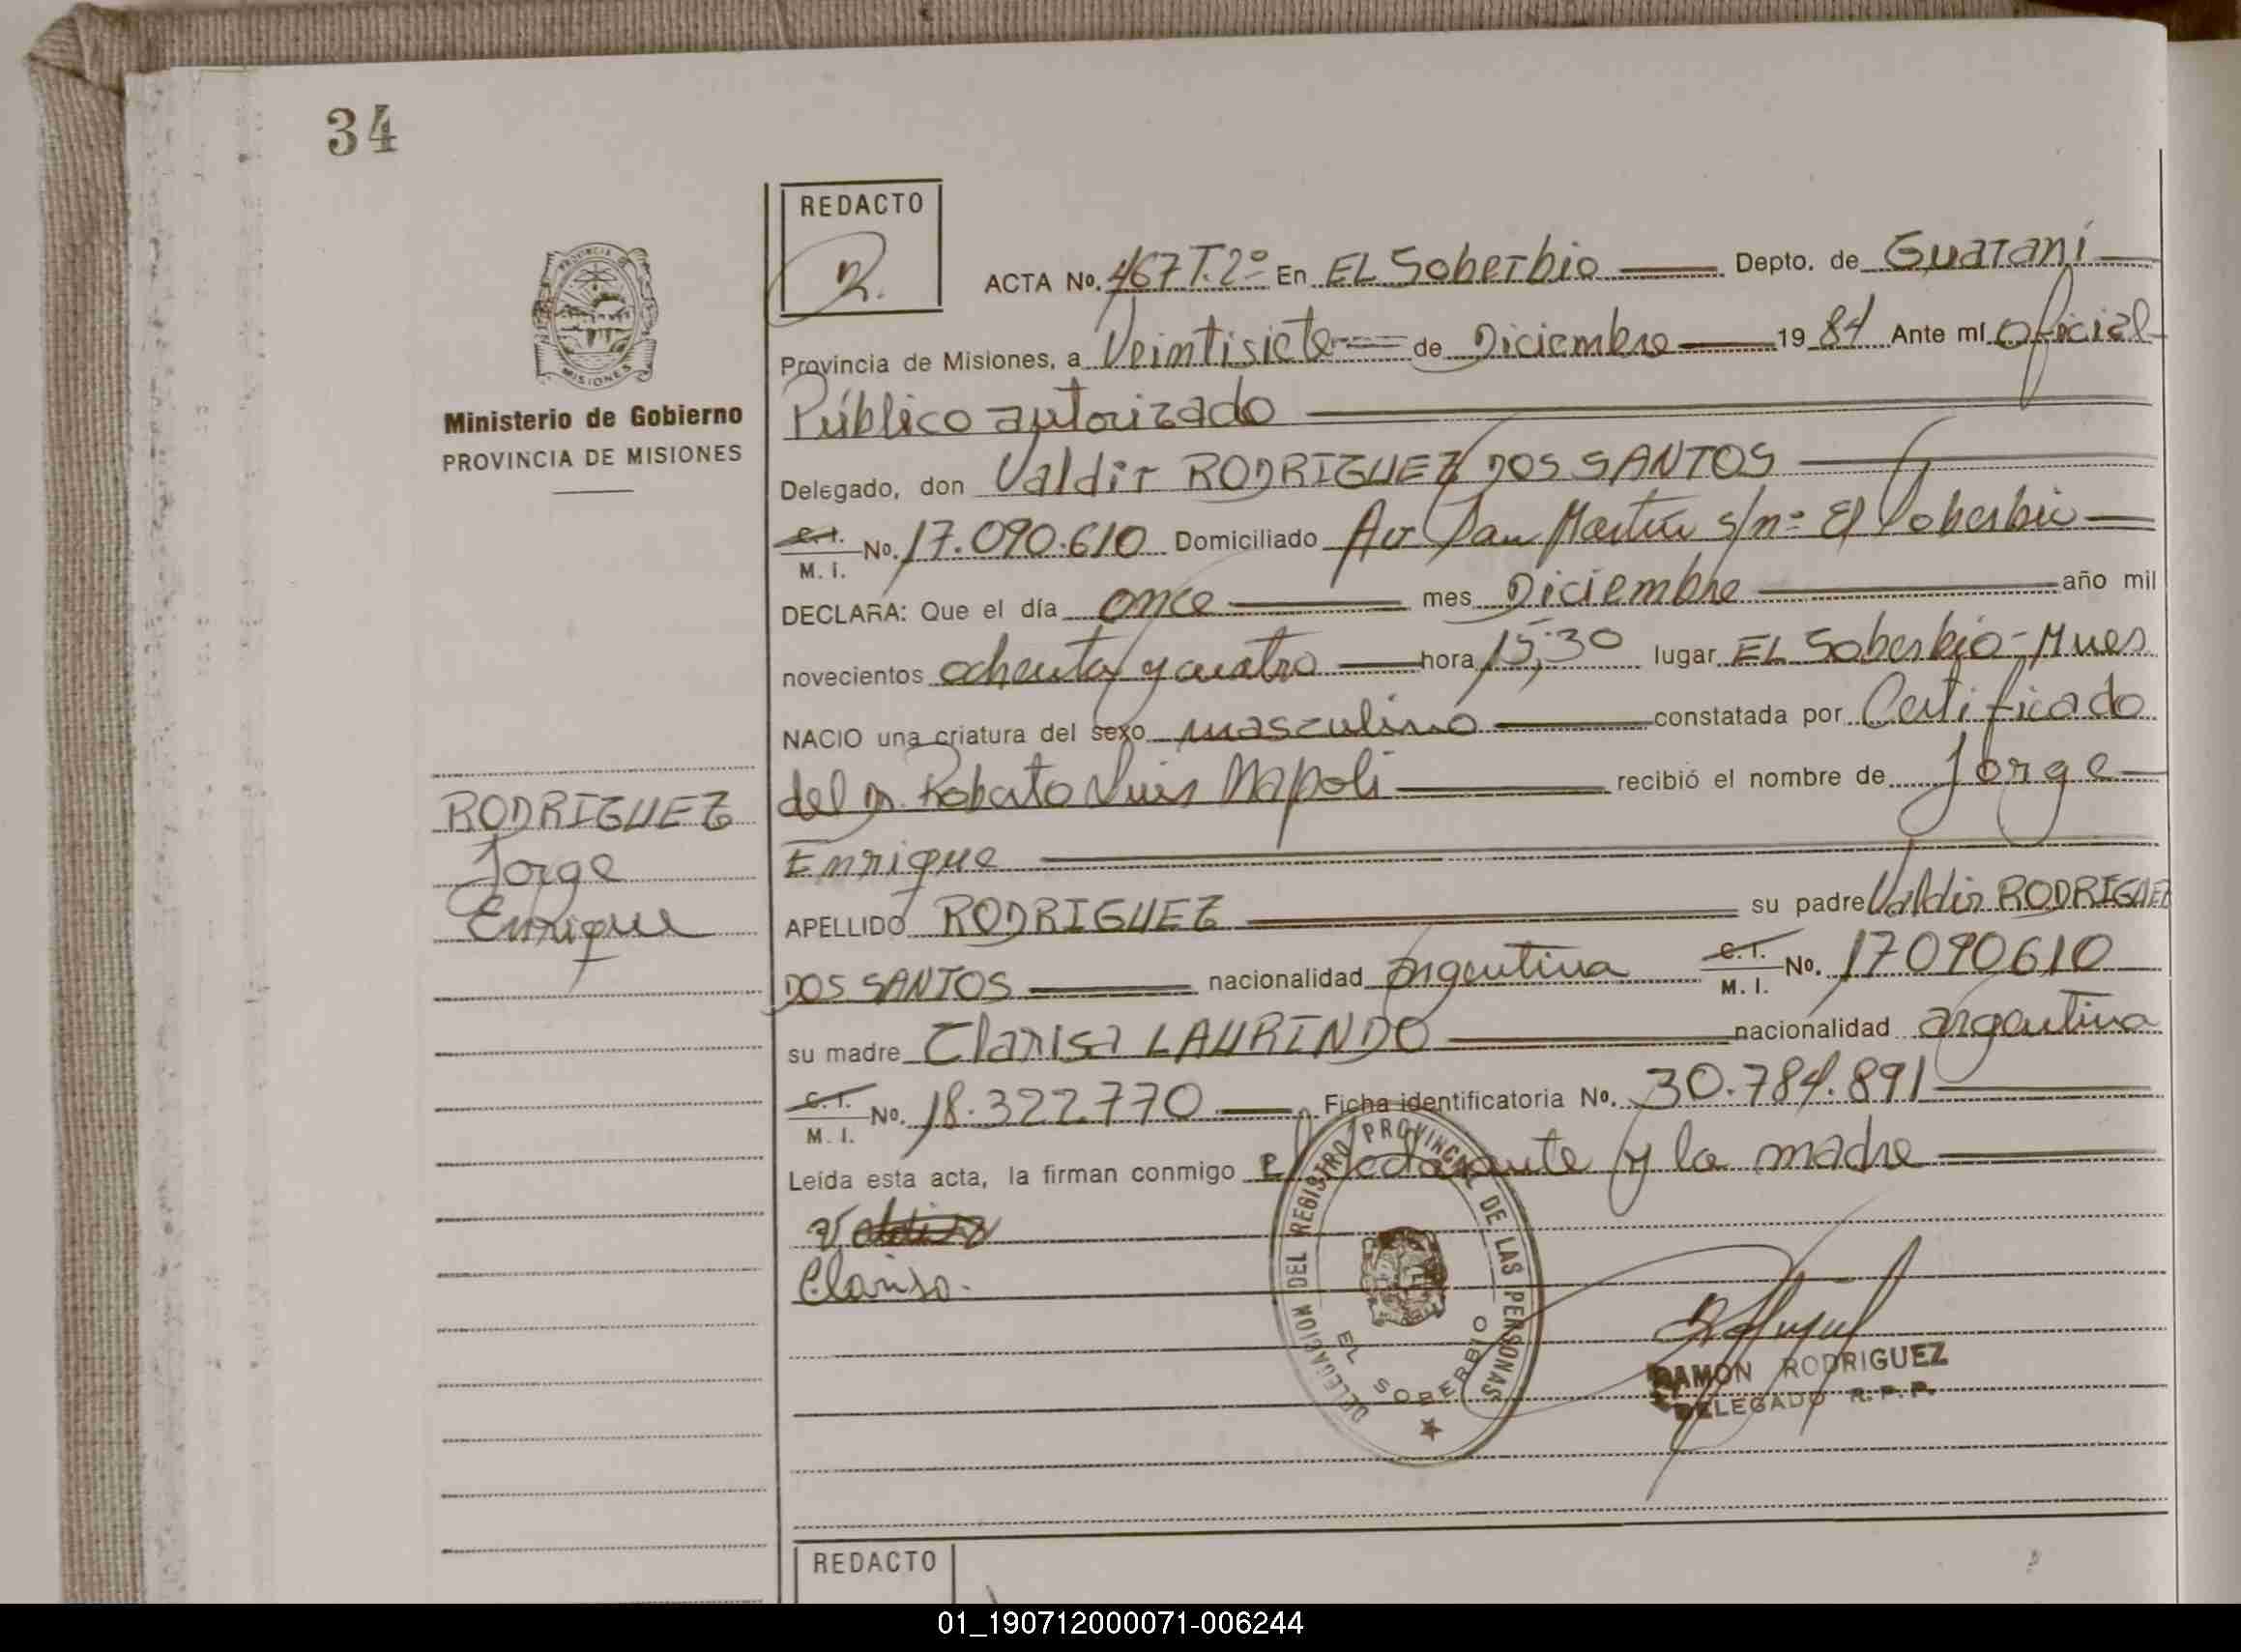 34
REDACTO
R.
PROVINCIA DE
MISIONES
Ministerio de Gobierno
PROVINCIA DE MISIONES
RODRIGUEZ
Jorge
Enrique
ACTA No. 467 T.2º En EL Soberbio Depto. de Guaraní
Provincia de Misiones, a Veintisiete de Diciembre 1984 Ante mí Oficial
Público autorizado
Delegado, don Valdir RODRIGUEZ DOS SANTOS
C.I. M.I. No. 17.090.610 Domiciliado Av San Martín s/nº El Soberbio
DECLARA: Que el día once mes Diciembre año mil
novecientos ochenta y cuatro hora 15,30 lugar EL Soberbio-Mnes
NACIO una criatura del sexo masculino constatada por Certificado
del Dr. Roberto Luis Napoli recibió el nombre de Jorge
Enrique
APELLIDO RODRIGUEZ su padre Valdir RODRIGUEZ
DOS SANTOS nacionalidad argentina C.I. M.I. No. 17090610
su madre Clarisa LAURINDO nacionalidad argentina
C.I. M.I. No. 18.322.770 Ficha identificatoria No. 30.784.891
Leída esta acta, la firman conmigo El declarante y la madre
Clarisa.
DELEGACION DEL REGISTRO PROVINCIAL DE LAS PERSONAS
EL SOBERBIO
RAMON RODRIGUEZ
DELEGADO R.P.P.
REDACTO
01_190712000071-006244